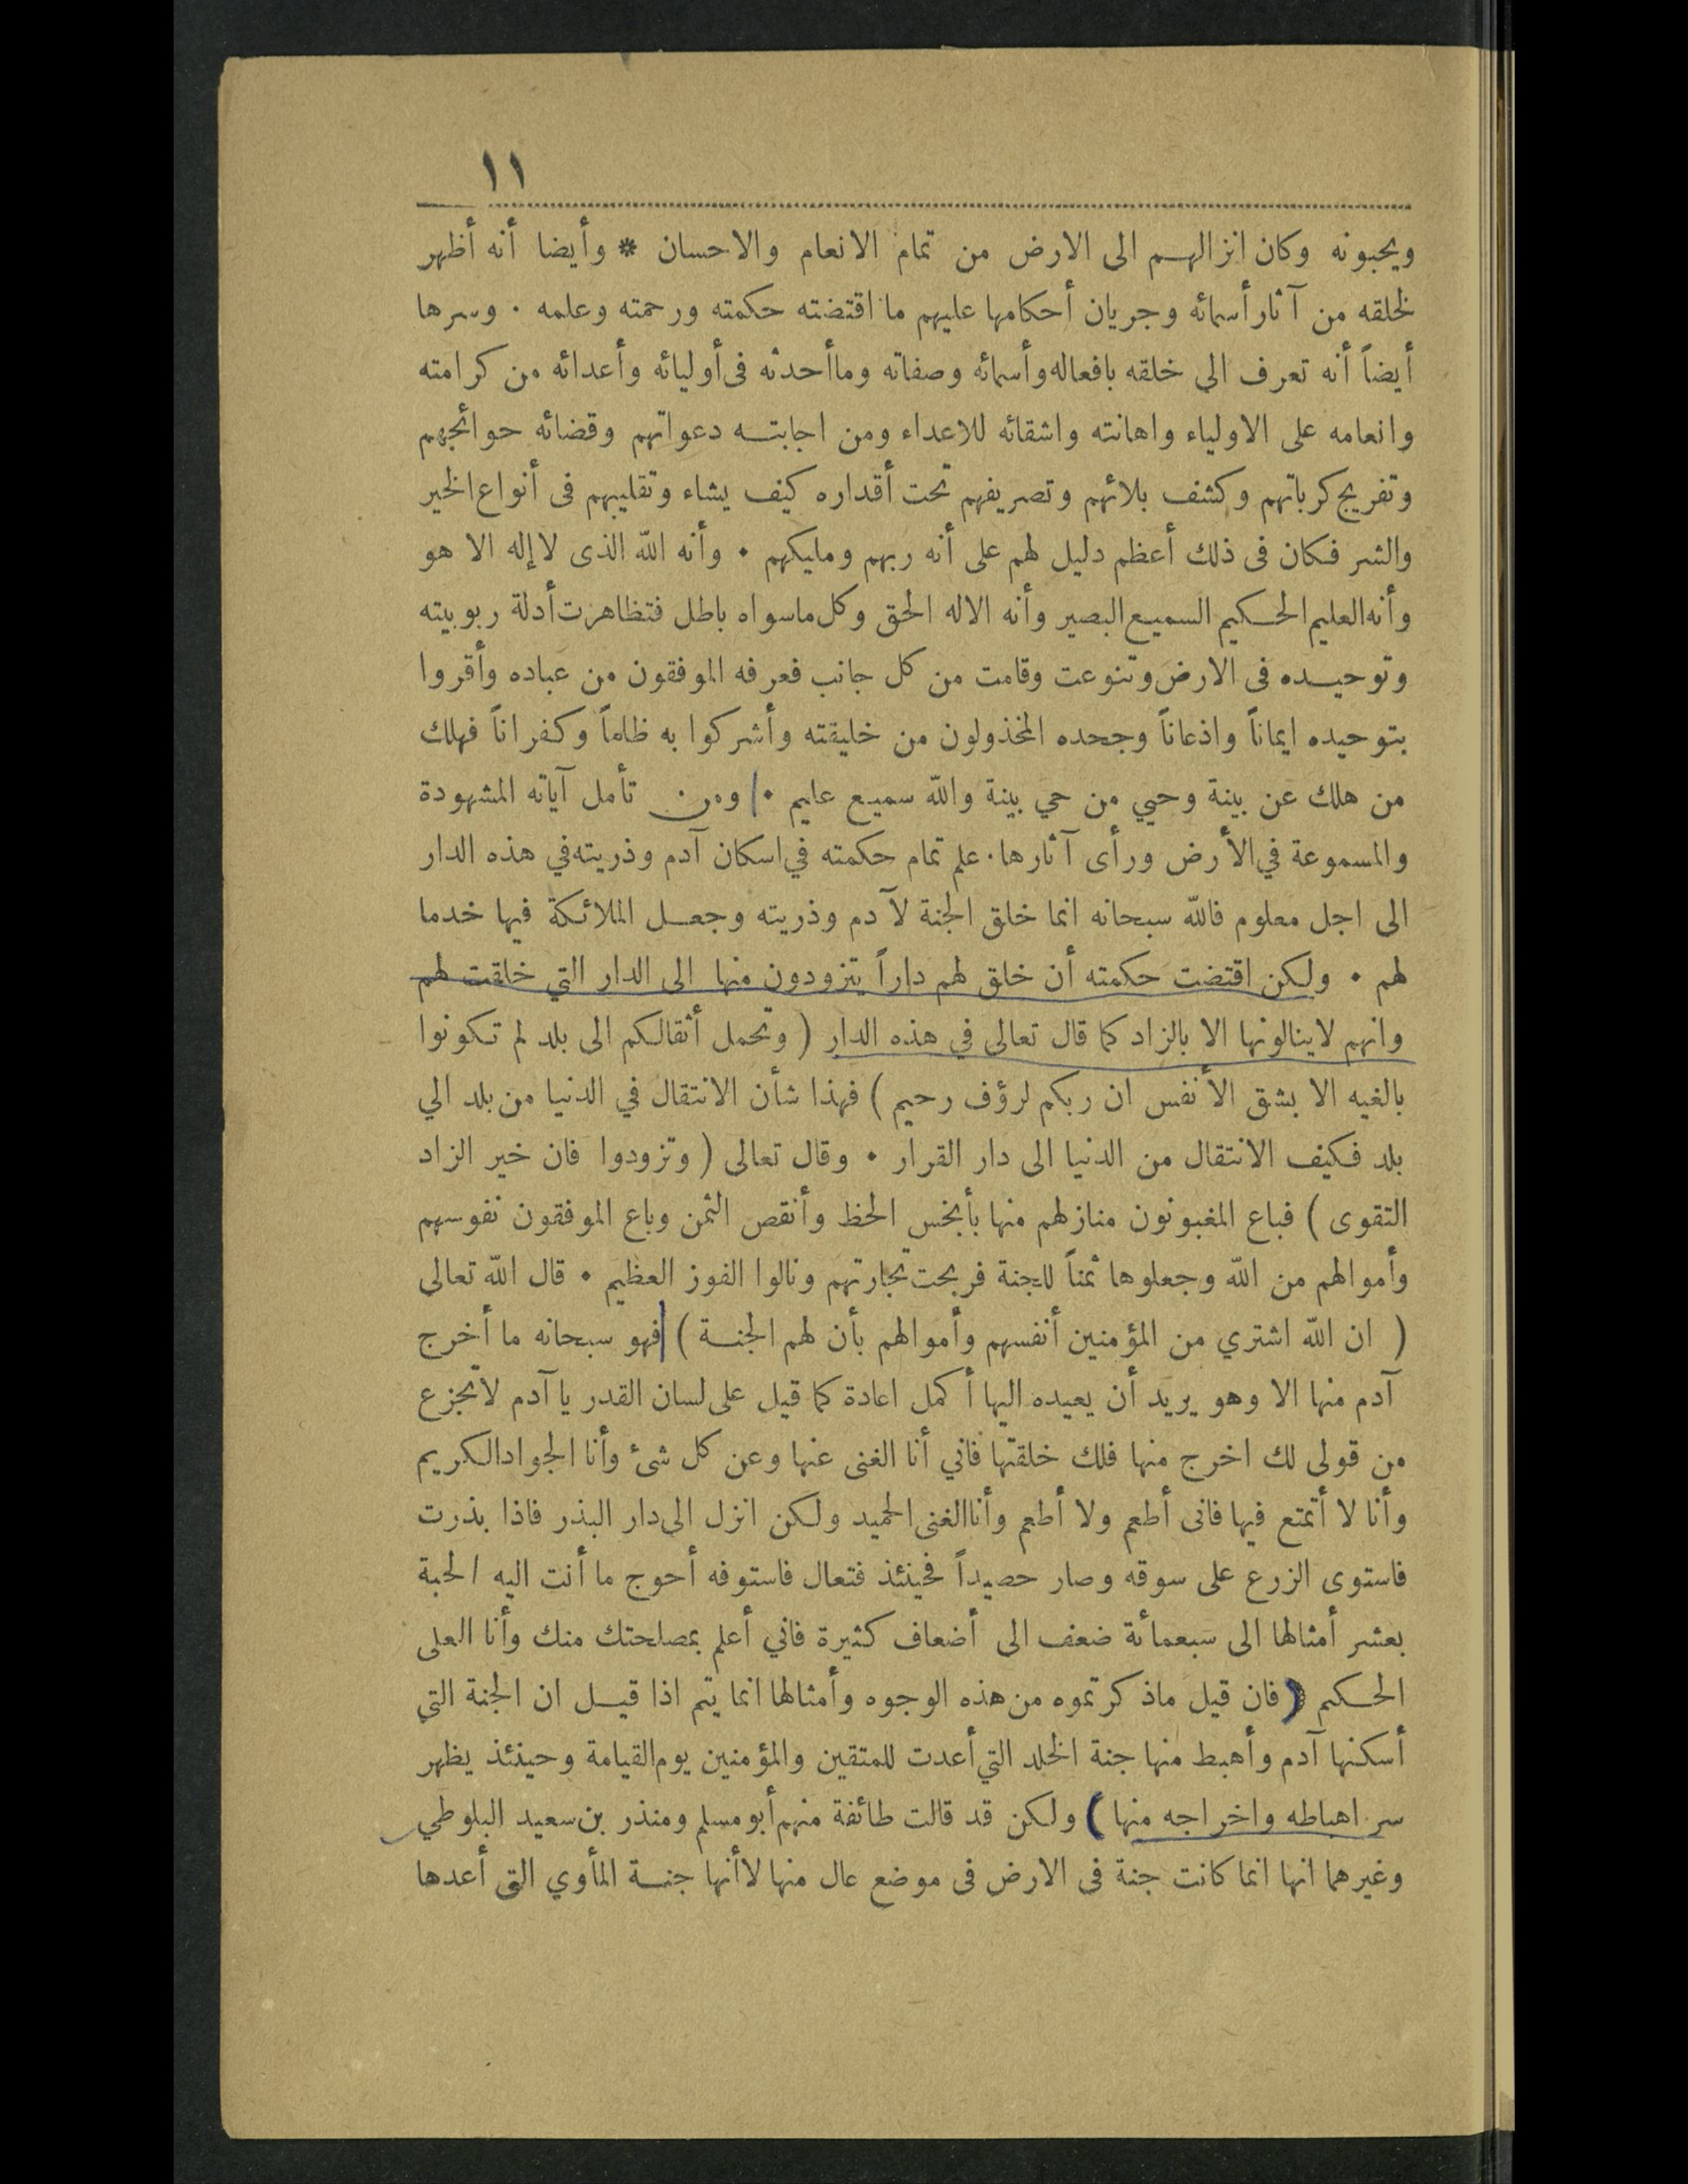 ١١
ويحبونه وكان انزالهم الى الارض من تمام الانعام والاحسان * وأيضا أنه أظهر
لخلقه من آثار أسمائه وجريان أحكامها عليهم ما اقتضته حكمته ورحمته وعلمه ٠ وسرها
أيضاً أنه تعرف الي خلقه بافعاله وأسمائه وصفاته وما أحدثه فى أوليائه وأعدائه من كرامته
وانعامه على الاولياء واهانته واشقائه للاعداء ومن اجابته دعواتهم وقضائه حوائجهم
وتفريج كرباتهم وكشف بلائهم وتصريفهم تحت أقداره كيف يشاء وتقليبهم فى أنواع الخير
والشر فكان فى ذلك أعظم دليل لهم على أنه ربهم ومليكهم ٠ وأنه الله الذى لا إله الا هو
وأنه العليم الحكيم السميع البصير وأنه الاله الحق وكل ماسواه باطل فتظاهرت أدلة ربوبيته
وتوحيده فى الارض وتنوعت وقامت من كل جانب فعرفه الموفقون من عباده وأقروا
بتوحيده ايماناً واذعاناً وجحده المخذولون من خليقته وأشركوا به ظلماً وكفراناً فهلك
من هلك عن بينة وحيي من حي بينة والله سميع عليم ٠ ومن تأمل آياته المشهودة
والمسموعة في الأرض ورأى آثارها ٠ علم تمام حكمته في اسكان آدم وذريته في هذه الدار
الى اجل معلوم فالله سبحانه انما خلق الجنة لآدم وذريته وجعل الملائكة فيها خدما
لهم ٠ ولكن اقتضت حكمته أن خلق لهم داراً يتزودون منها الى الدار التي خلقت لهم
وانهم لاينالونها الا بالزاد كما قال تعالى في هذه الدار ( وتحمل أثقالكم الى بلد لم تكونوا
بالغيه الا بشق الأنفس ان ربكم لرؤف رحيم ) فهذا شأن الانتقال في الدنيا من بلد الي
بلد فكيف الانتقال من الدنيا الى دار القرار ٠ وقال تعالى ( وتزودوا فان خير الزاد
التقوى ) فباع المغبونون منازلهم منها بأبخس الحظ وأنقص الثمن وباع الموفقون نفوسهم
وأموالهم من الله وجعلوها ثمناً للجنة فربحت تجارتهم ونالوا الفوز العظيم ٠ قال الله تعالى
( ان الله اشتري من المؤمنين أنفسهم وأموالهم بأن لهم الجنة ) فهو سبحانه ما أخرج
آدم منها الا وهو يريد أن يعيده اليها أكمل اعادة كما قيل على لسان القدر يا آدم لاتجزع
من قولى لك اخرج منها فلك خلقتها فاني أنا الغنى عنها وعن كل شئ وأنا الجواد الكريم
وأنا لا أتمتع فيها فانى أطعم ولا أطعم وأنا الغنى الحميد ولكن انزل الى دار البذر فاذا بذرت
فاستوى الزرع على سوقه وصار حصيداً فحينئذ فتعال فاستوفه أحوج ما أنت اليه الحبة
بعشر أمثالها الى سبعمائة ضعف الى أضعاف كثيرة فاني أعلم بمصلحتك منك وأنا العلى
الحكيم ( فان قيل ماذكرتموه من هذه الوجوه وأمثالها انما يتم اذا قيل ان الجنة التي
أسكنها آدم وأهبط منها جنة الخلد التي أعدت للمتقين والمؤمنين يوم القيامة وحينئذ يظهر
سر اهباطه واخراجه منها ) ولكن قد قالت طائفة منهم أبو مسلم ومنذر بن سعيد البلوطي
وغيرهما انها انما كانت جنة فى الارض فى موضع عال منها لا أنها جنة المأوي التى أعدها